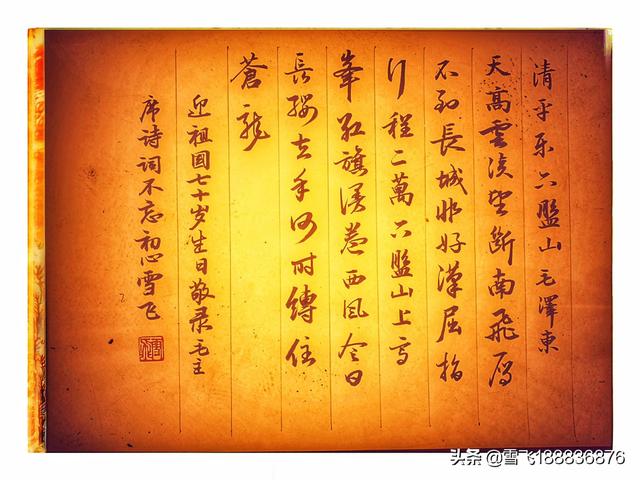 清平乐六盤山 毛澤東
天高雲淡望斷南飛雁
不到長城非好漢屈指
行程二萬六盤山上高
峯红旗漫卷西風今日
長缨在手何时縛住
蒼龍
迎祖国七十岁生日敬录毛主
席诗词不忘初心雪飞
头条 @雪飞188836876